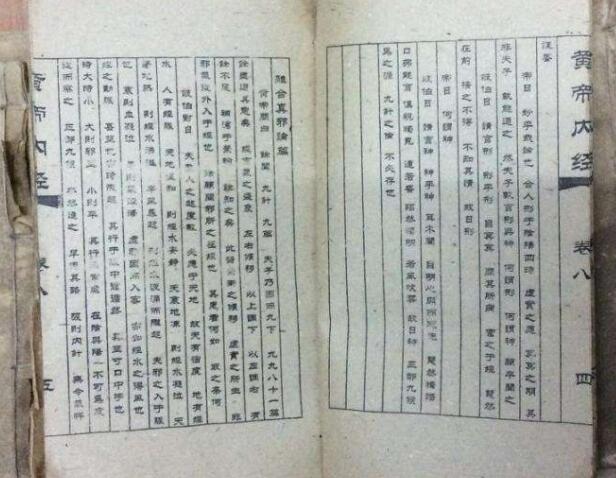 黄帝内经 卷八 四
帝曰 妙乎哉論也 合人形于陰陽四時 虛實之應 冥冥之期 其
非夫子 孰能通之 然夫子數言形與神 何謂形 何謂神 願卒聞之
歧伯曰 請言形 形乎形 目冥冥 問其所病 索之于經 慧然
在前 按之不得 不知其情 故曰形
帝曰 何謂神
歧伯曰 請言神 神乎神 耳不聞 目明心開而志先 慧然獨悟
口弗能言 俱視獨見 適若昏 昭然獨明 若風吹雲 故曰神 三部九候
為之原 九針之論 不必存也
離合真邪論篇
黃帝問曰 余聞 九針 九篇 夫子乃因而九之 九九八十一篇
余盡通其意矣 經言氣之盛衰 左右傾移 以上調下 以左調右 有
餘不足 補瀉于榮輸 余知之矣 此皆榮衛之傾移 虛實之所生 非
邪氣從外入于經也 余願聞邪氣之在經也 其病人何如 取之奈何
歧伯對曰 夫聖人之起度數 必應于天地 故天有宿度 地有經
水 人有經脈 天地溫和 則經水安靜 天寒地凍 則經水凝泣 天
暑地熱 則經水沸溢 卒風暴起 則經水波涌而隴起 夫邪之入于脈
也 寒則血凝泣 暑則氣淖澤 虛邪因而入客 亦如經水之得風也
經之動脈 其至也亦時隴起 其行于脈中循循然 其至寸口中手也
時大時小 大則邪至 小則平 其行無常處 在陰與陽 不可為度
從而察之 三部九候 卒然逢之 早遏其路 吸則內針 無令氣忤
黄帝内经 卷八 五